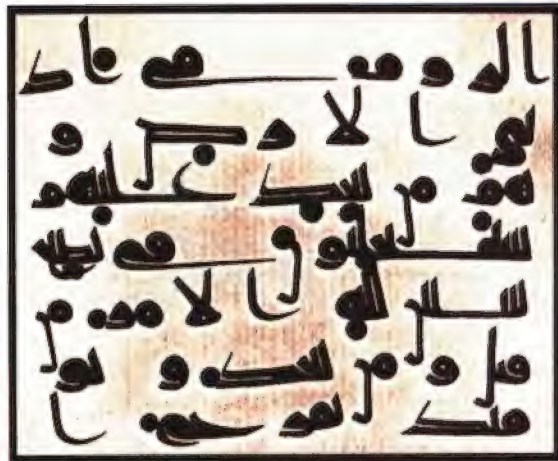 الروم فى اد
نى الارض و
هم من بعد غلبهم
سيغلبون فى بضع
سنين لله الامر من
قبل و من بعد و يو
مئذ يفرح ا